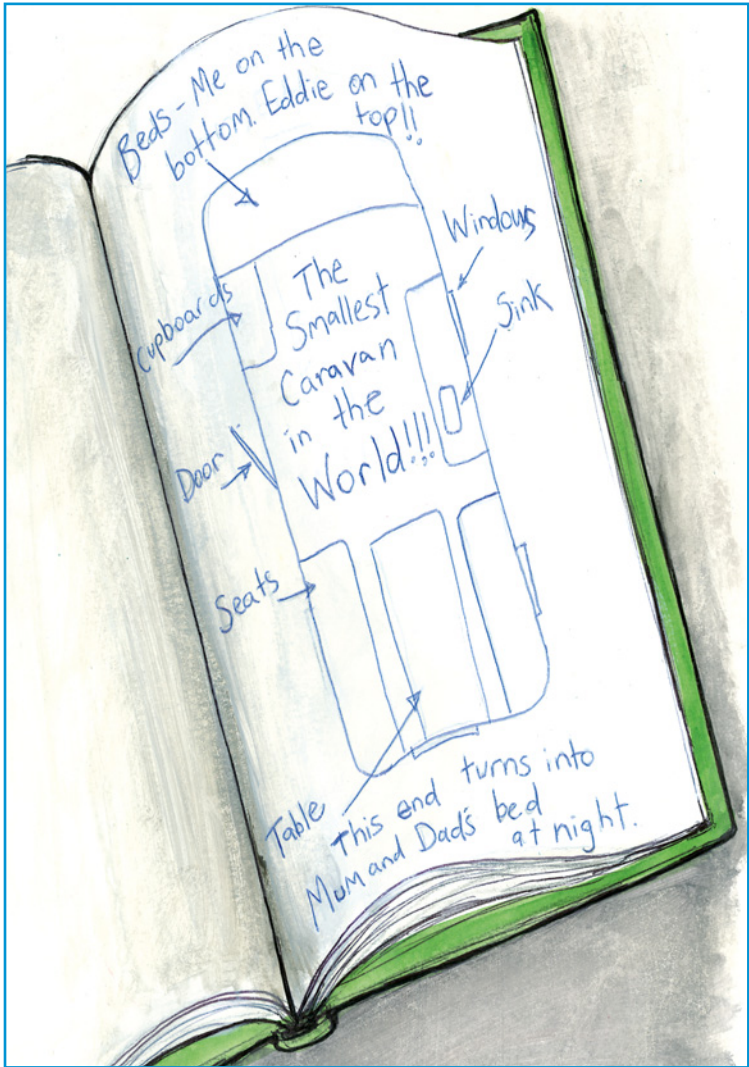 Beds - Me on the
bottom. Eddie on the
top!!
Windows
Cupboards
The
Smallest
Caravan
in the
World!!!
Sink
Door
Seats
Table
This end turns into
Mum and Dad's bed
at night.